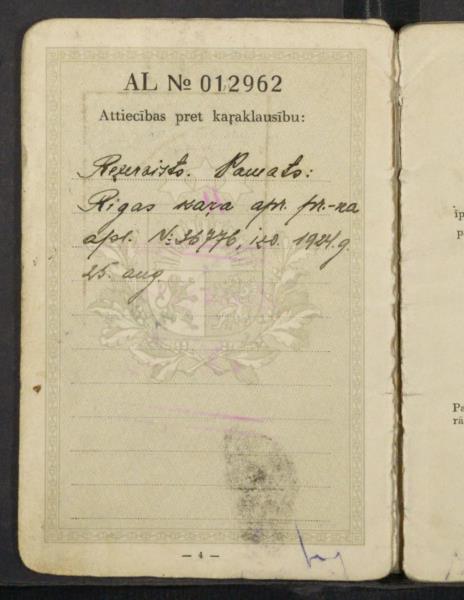 AL № 012962
Attiecības pret kaŗaklausību:
Rezervists. Pamats:
Rigas kaŗa apr. pr-ka
apl. №: 36776, izd. 1924. g.
25. aug.
— 4 —
īp
p
Pa
rā